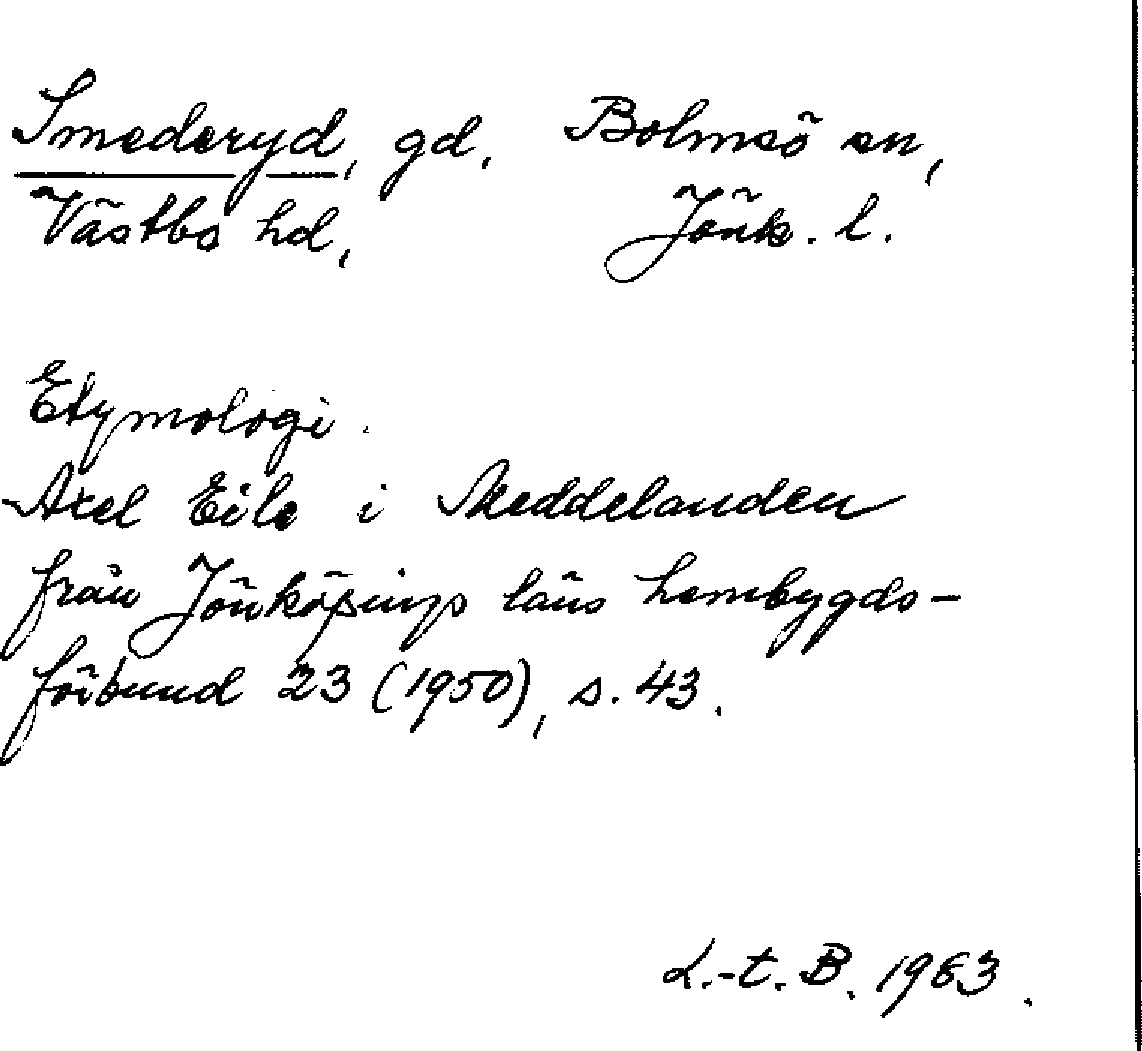 Smederyd, gd, Bolmsö sn,
Västbo hd, Jönk. l.
Etymologi.
Axel Eile i Meddelanden
från Jönköpings läns hembygds-
förbund 23 (1950), s. 43.
L.-t. B. 1963.